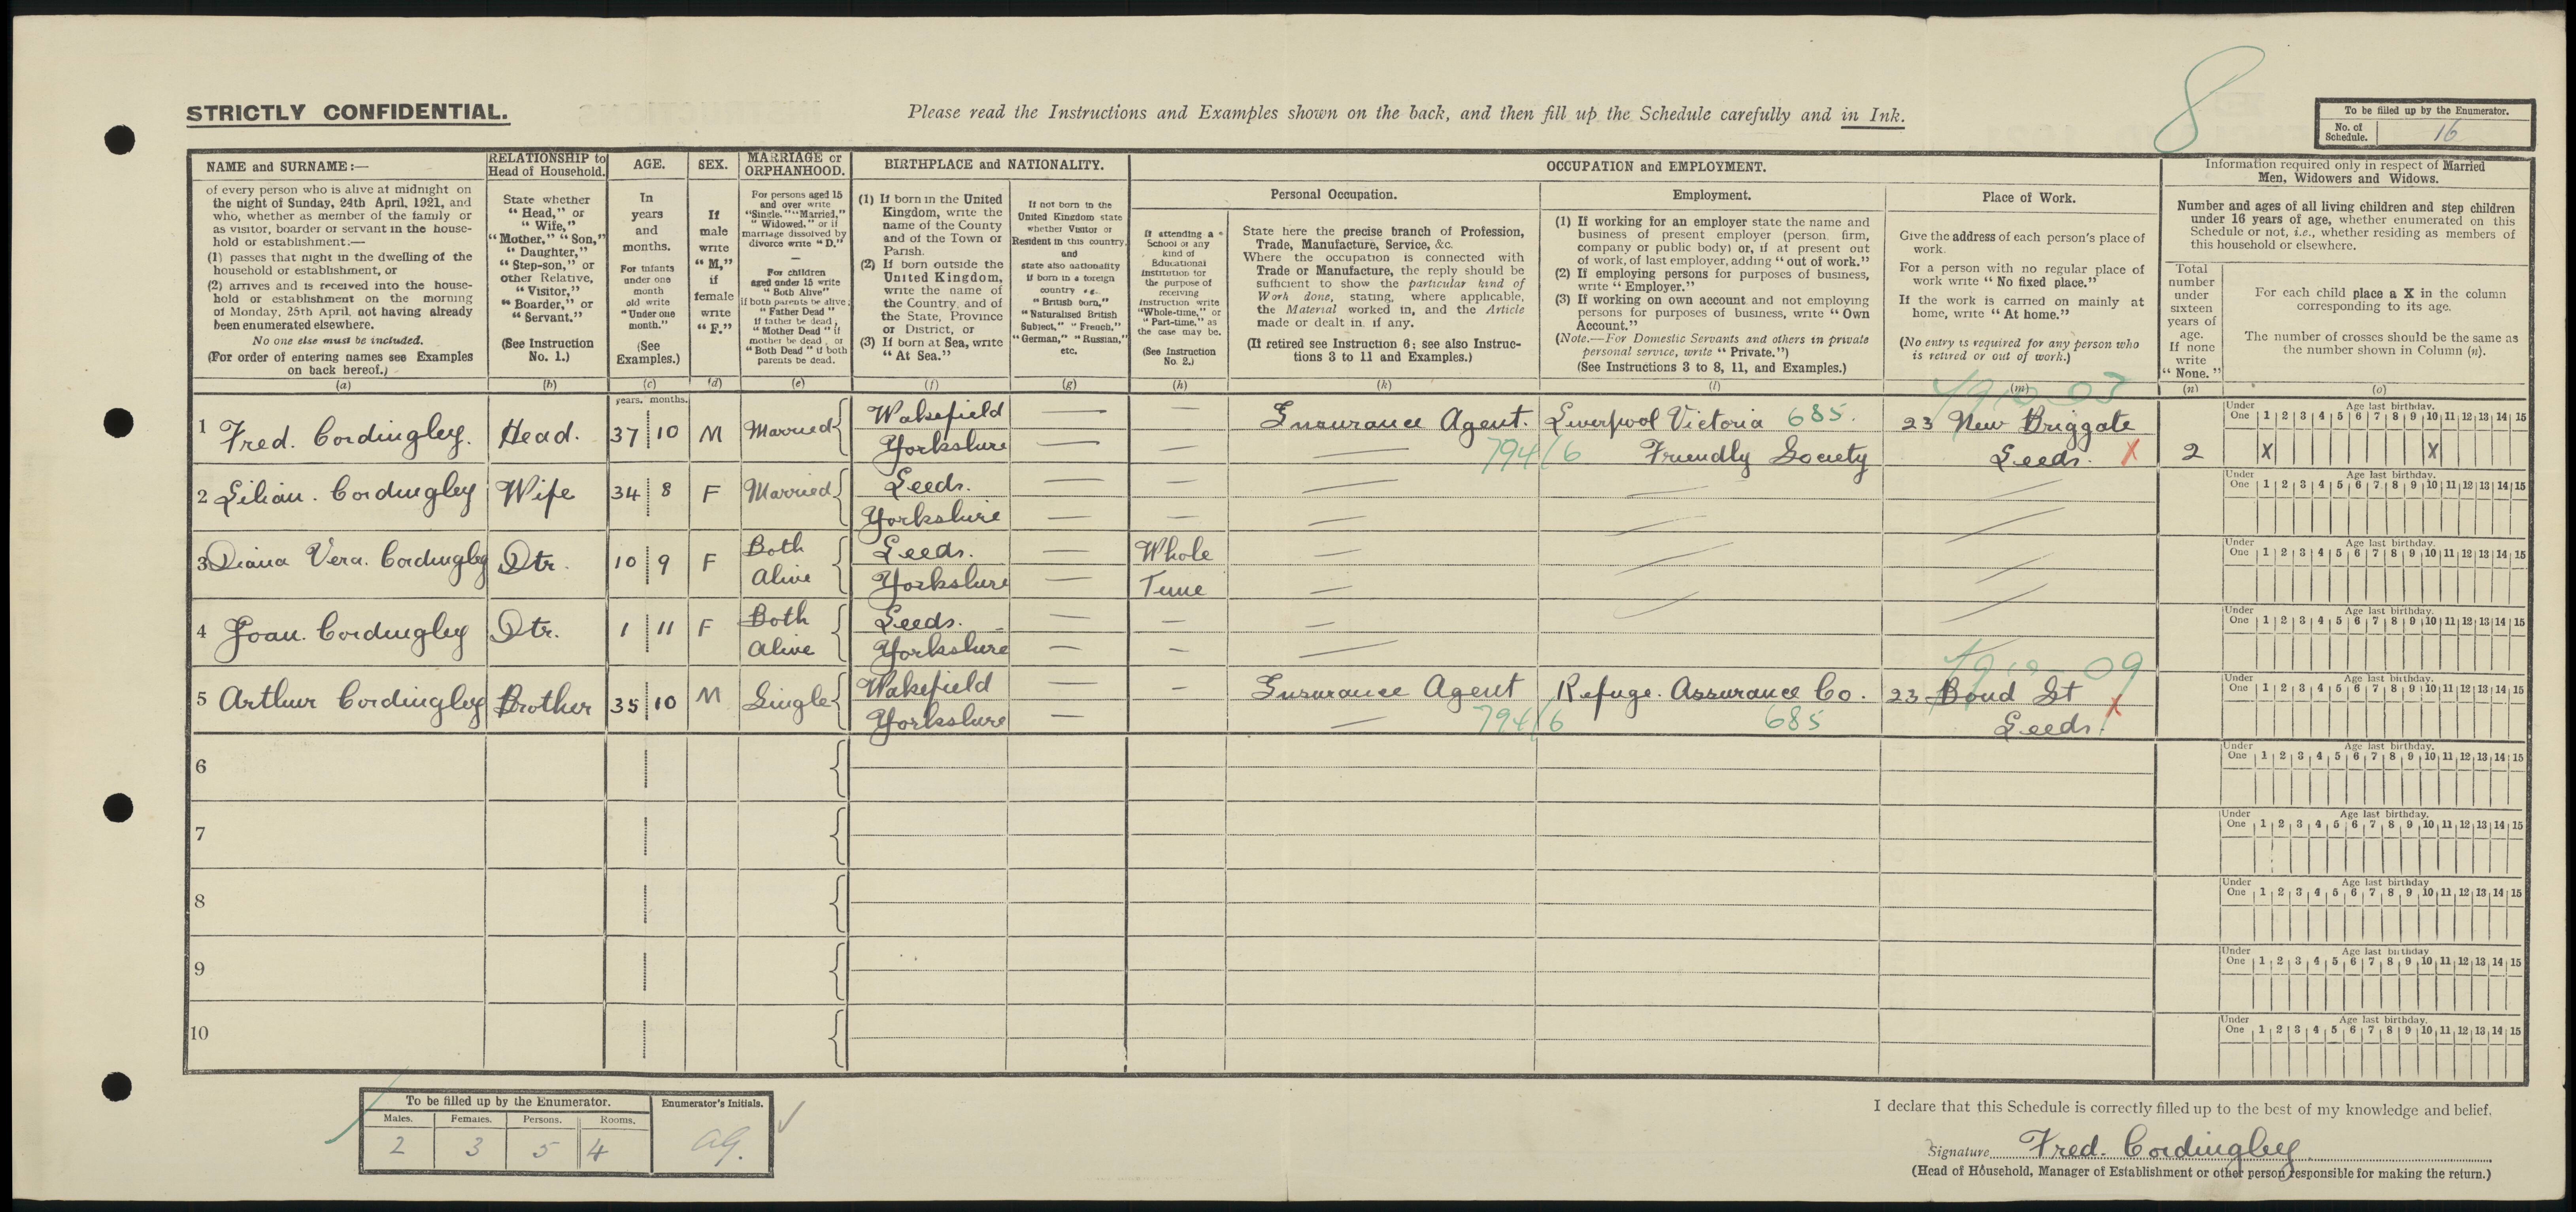 STRICTLY CONFIDENTIAL.
Please read the Instructions and Examples shown on the back, and then fill up the Schedule carefully and in Ink.
8
To be filled up by the Enumerator.
No. of Schedule. 16
NAME and SURNAME:—
of every person who is alive at midnight on
the night of Sunday, 24th April, 1921, and
who, whether as member of the family or
as visitor, boarder or servant in the house-
hold or establishment:—
(1) passes that night in the dwelling of the
household or establishment, or
(2) arrives and is received into the house-
hold or establishment on the morning
of Monday, 25th April, not having already
been enumerated elsewhere.
No one else must be included.
(For order of entering names see Examples
on back hereof.)
(a)
RELATIONSHIP to
Head of Household.
State whether
"Head," or
"Wife,"
"Mother," "Son,"
"Daughter,"
"Step-son," or
other Relative,
"Visitor,"
"Boarder," or
"Servant."
(See Instruction
No. 1.)
(b)
AGE.
In
years
and
months.
For infants
under one
month
old write
"Under one
month."
(See
Examples.)
(c)
SEX.
If
male
write
"M,"
if
female
write
"F."
(d)
MARRIAGE or
ORPHANHOOD.
For persons aged 15
and over write
"Single," "Married,"
"Widowed," or if
marriage dissolved by
divorce write "D."
—
For children
aged under 15 write
"Both Alive"
if both parents be alive,
"Father Dead"
if father be dead,
"Mother Dead" if
mother be dead, or
"Both Dead" if both
parents be dead.
(e)
BIRTHPLACE and NATIONALITY.
(1) If born in the United
Kingdom, write the
name of the County
and of the Town or
Parish.
(2) If born outside the
United Kingdom,
write the name of
the Country, and of
the State, Province
or District, or
(3) If born at Sea, write
"At Sea."
(f)
If not born in the
United Kingdom state
whether Visitor or
Resident in this country,
and
state also nationality
if born in a foreign
country e.g.
"British born,"
"Naturalised British
Subject," "French,"
"German," "Russian,"
etc.
(g)
OCCUPATION and EMPLOYMENT.
If attending a
School or any
kind of
Educational
Institution for
the purpose of
receiving
instruction write
"Whole-time," or
"Part-time," as
the case may be.
(See Instruction
No. 2.)
(h)
Personal Occupation.
State here the precise branch of Profession,
Trade, Manufacture, Service, &c.
Where the occupation is connected with
Trade or Manufacture, the reply should be
sufficient to show the particular kind of
Work done, stating, where applicable,
the Material worked in, and the Article
made or dealt in, if any.
(If retired see Instruction 6; see also Instruc-
tions 3 to 11 and Examples.)
(k)
Employment.
(1) If working for an employer state the name and
business of present employer (person, firm,
company or public body) or, if at present out
of work, of last employer, adding "out of work."
(2) If employing persons for purposes of business,
write "Employer."
(3) If working on own account and not employing
persons for purposes of business, write "Own
Account."
(Note.—For Domestic Servants and others in private
personal service, write "Private.")
(See Instructions 3 to 8, 11, and Examples.)
(l)
Place of Work.
Give the address of each person's place of
work.
For a person with no regular place of
work write "No fixed place."
If the work is carried on mainly at
home, write "At home."
(No entry is required for any person who
is retired or out of work.)
(m)
Information required only in respect of Married
Men, Widowers and Widows.
Number and ages of all living children and step children
under 16 years of age, whether enumerated on this
Schedule or not, i.e., whether residing as members of
this household or elsewhere.
Total
number
under
sixteen
years of
age.
If none
write
"None."
(n)
For each child place a X in the column
corresponding to its age.
The number of crosses should be the same as
the number shown in Column (n).
(o)
years. months.
Under One Age last birthday. 1 2 3 4 5 6 7 8 9 10 11 12 13 14 15
1 Fred. Cordingley. Head. 37 10 M Married Wakefield — — Insurance Agent. Liverpool Victoria 685. 23 New Briggate
Yorkshire — — — 794/6 Friendly Society Leeds. X 2 X X
Under One Age last birthday. 1 2 3 4 5 6 7 8 9 10 11 12 13 14 15
2 Lilian. Cordingley Wife 34 8 F Married Leeds. — — —
Yorkshire — — —
Under One Age last birthday. 1 2 3 4 5 6 7 8 9 10 11 12 13 14 15
3 Diana Vera. Cordingley Dtr. 10 9 F Both Alive Leeds. — Whole —
Yorkshire — Time —
Under One Age last birthday. 1 2 3 4 5 6 7 8 9 10 11 12 13 14 15
4 Joan. Cordingley Dtr. 1 11 F Both Alive Leeds. — — —
Yorkshire — — —
Under One Age last birthday. 1 2 3 4 5 6 7 8 9 10 11 12 13 14 15
5 Arthur Cordingley Brother 35 10 M Single Wakefield — — Insurance Agent Refuge. Assurance Co. 23 Bond St X
Yorkshire — — 794/6 685 Leeds.
Under One Age last birthday. 1 2 3 4 5 6 7 8 9 10 11 12 13 14 15
6
Under One Age last birthday. 1 2 3 4 5 6 7 8 9 10 11 12 13 14 15
7
Under One Age last birthday 1 2 3 4 5 6 7 8 9 10 11 12 13 14 15
8
Under One Age last birthday 1 2 3 4 5 6 7 8 9 10 11 12 13 14 15
9
Under One Age last birthday. 1 2 3 4 5 6 7 8 9 10 11 12 13 14 15
10
To be filled up by the Enumerator.
Males. Females. Persons. Rooms.
2 3 5 4
Enumerator's Initials.
AG.
I declare that this Schedule is correctly filled up to the best of my knowledge and belief.
Signature Fred. Cordingley.
(Head of Household, Manager of Establishment or other person responsible for making the return.)